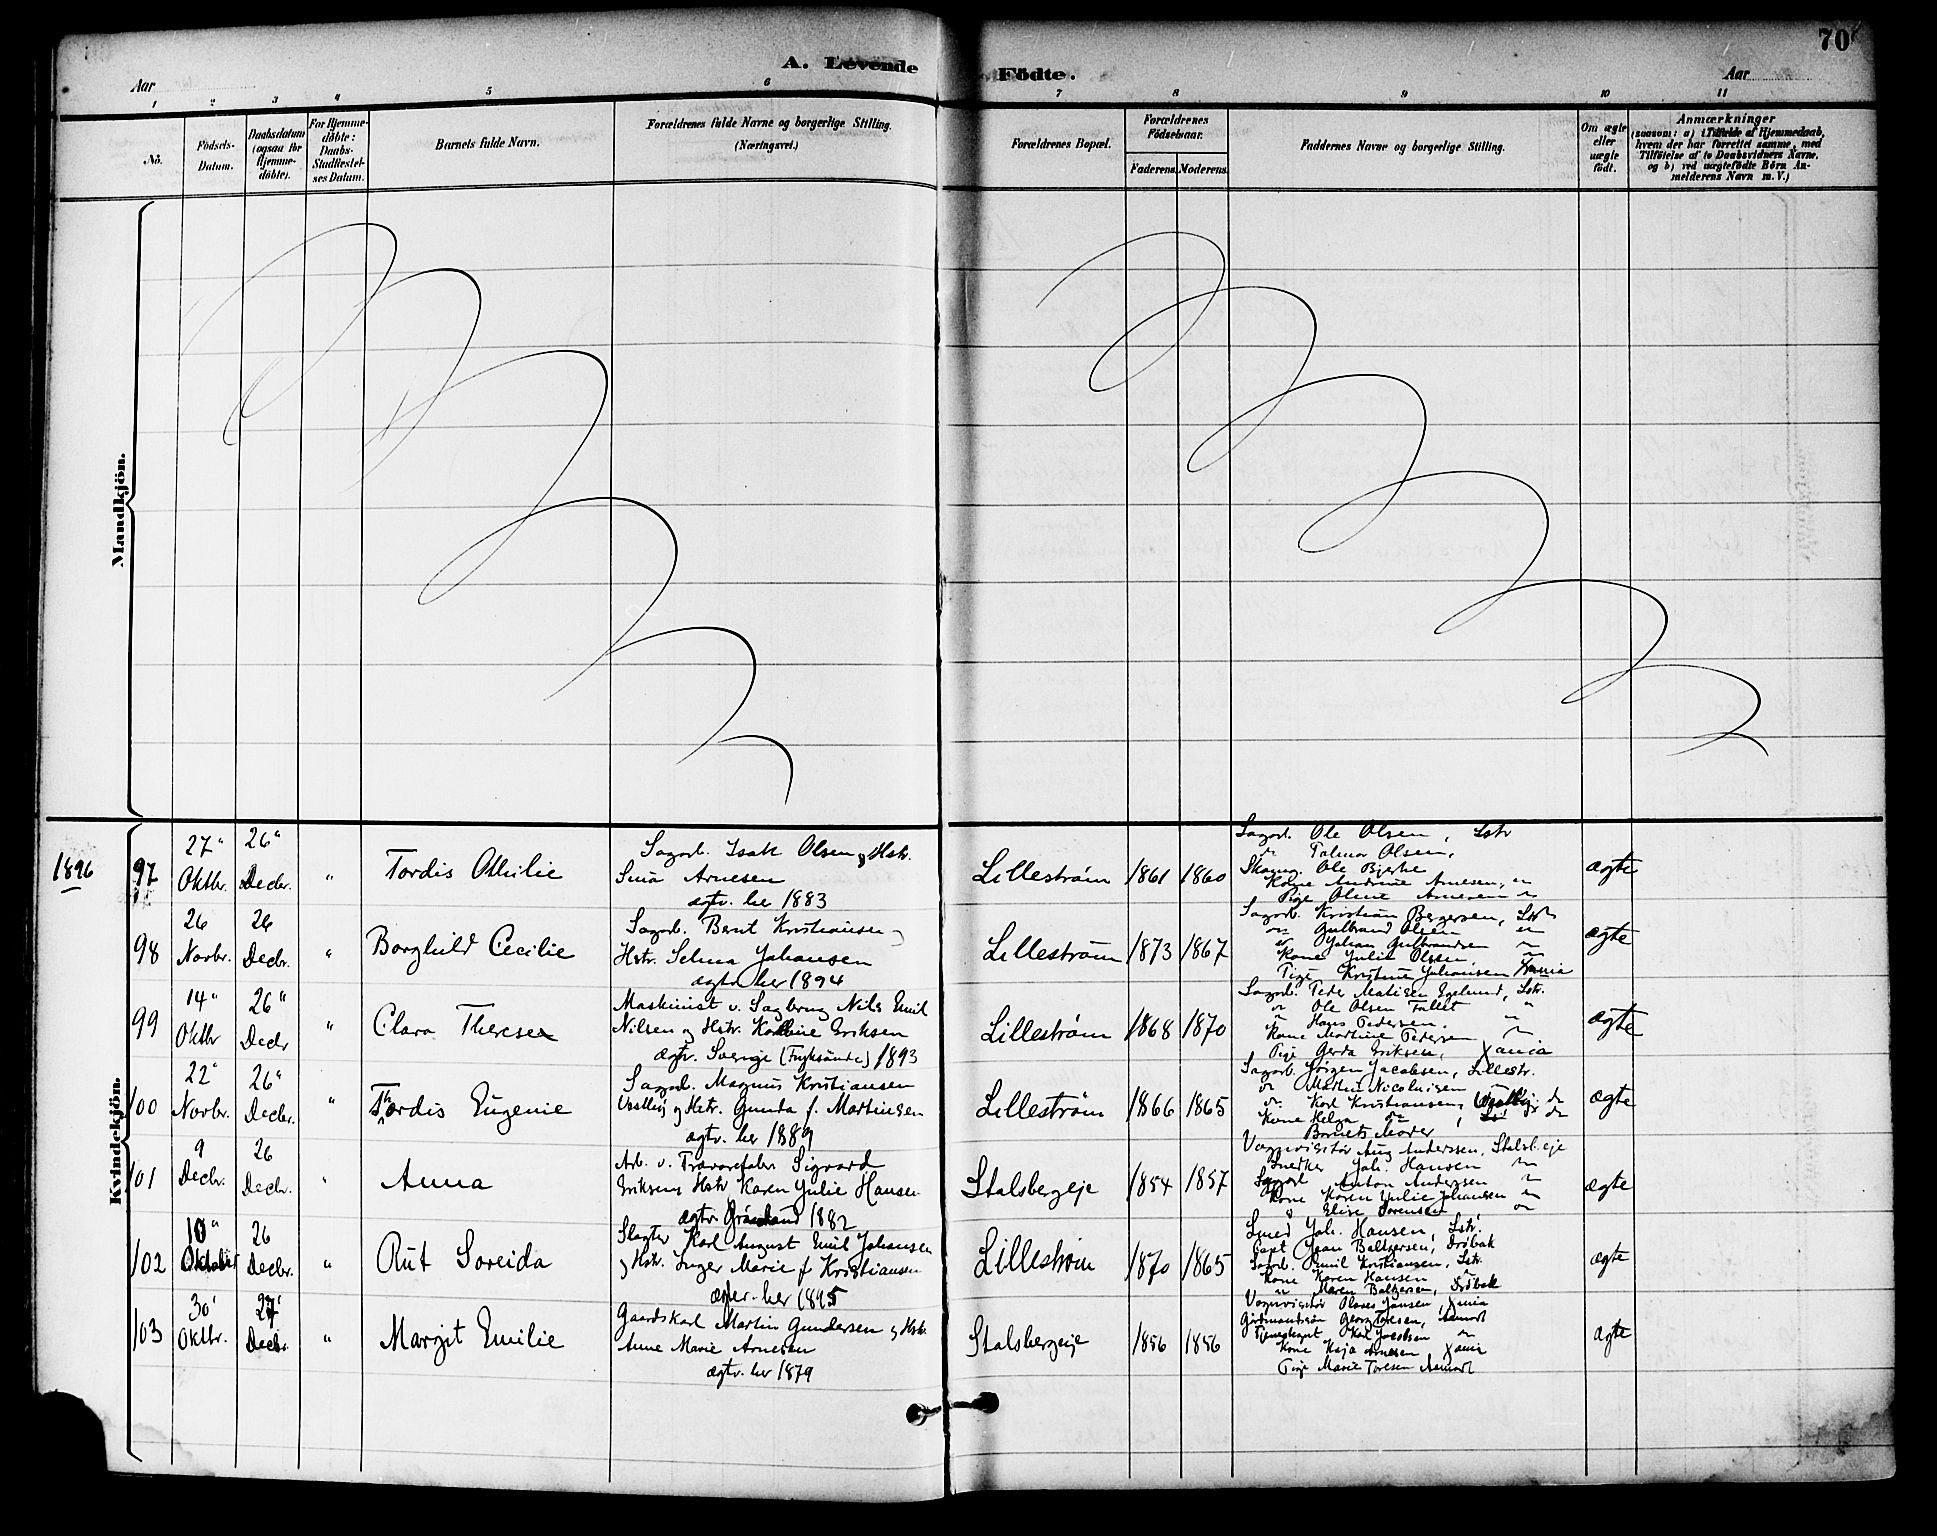 70
A. Levende Födte.
Aar
Aar
1 2 3 4 5 6 7 8 9 10 11
No.
Födsels-
Datum.
Daabsdatum
(ogsaa for
Hjemme-
döbte).
For Hjemme-
döbte:
Daabs-
Stadfæstel-
ses Datum.
Barnets fulde Navn.
Forældrenes fulde Navne og borgerlige Stilling.
(Næringsvei.)
Forældrenes Bopæl.
Forældrenes
Födselsaar.
Faderens. Moderens.
Faddernes Navne og borgerlige Stilling.
Om ægte
eller
uægte
født.
Anmærkninger
(saasom: a) i Tilfælde af Hjemmedaab,
hvem der har forrettet samme, med
Tilföielse af to Daabsvidners Navne,
og b) ved uægtefödte Börn An-
melderens Navn m. V.)
Mandkjön.
Kvindekjön.
1896
97
27
Oktbr.
26
Decbr.
"
Tordis Othilie
Sagarb. Isak Olsen og Hstr.
Sina Arnesen
ægtv. her 1883
Lillestrøm
1861
1860
Sagarb. Ole Olsen, Lstr
Talmor Olsen,
Ole Bjerke
Kone Andrine Arnesen, "
Pige Oline Arnesen "
ægte
98
26
Novbr.
26
Decbr.
"
Borghild Cecilie
Sagarb. Bernt Kristiansen
Hstr. Selma Johansen
ægtv. her 1894
Lillestrøm
1873
1867
Sagarb. Kristian Bergersen, Lstr
" Gulbrand Olsen "
" Johan Gulbrandsen "
Kone Julie Olsen, "
Pige Kristine Johansen Xania
ægte
99
14
Oktbr
26
Decbr
"
Clara Therese
Maskinist v. Sagbrug Nils Emil
Nilsen og Hstr. Eriksen
ægtv. Sverige (Fryksände) 1893
Lillestrøm
1868
1870
Sagarb. Peder Matisen Egelund, Lstr.
" Ole Olsen Fallet "
" Hans Pedersen, "
Kone Martine Pedersen "
Pige Gerda Eriksen, Xania
ægte
100
22
Novbr.
26
Decbr.
"
Thordis Eugenie
Sagarb. Magnus Kristiansen
og Hstr. Gunda f. Martinsen
ægtv. her 1889
Lillestrøm
1866
1865
Sagarb. Jörgen Jacobsen, Lillestr.
" Martin Nicolaisen "
" Karl Kristiansen,
Kone Helga
Barnets Moder
ægte
101
9
Decbr.
26
Decbr.
"
Anna
Arb. v. Trævarefabr. Sigvard
Eriksen og Hstr Karen Julie Hansen
ægtv. 1882
Stalsbergeje
1854
1857
Vognvisitør Aug Anderssen, Stalsbeje
Snedker Joh. Hansen "
Sagarb Anton Anderssen "
Kone Karen Julie Johansen "
" Elise Sorensen "
ægte
102
10
Oktober
26
Decbr.
"
Rut Soreida
Slagter Karl August Emil Johansen
og Hstr. Inger Marie f Kristiansen
ægtv. her 1895
Lillestrøm
1870
1865
Smed Joh. Hansen, Lstr.
Capt Johan Baltzersen, Drøbak
Sagarb. Emil Kristiansen, Lstr.
Kone Karen Hansen "
" Maren Baltzersen, Drøbak
ægte
103
30
Oktbr.
27
Decbr.
"
Margit Emilie
Gaardskarl Martin Gundersen og Hstr.
Anne Marie Arnesen
ægtv. her 1879
Stalsbergeje
1856
1856
Vognvisitør Jansen, Xania
Georg Toresen, Aamodt
Karl Jacobsen "
Kone Kaja Arnesen Xania
Pige Marie Toresen Aamodt
ægte